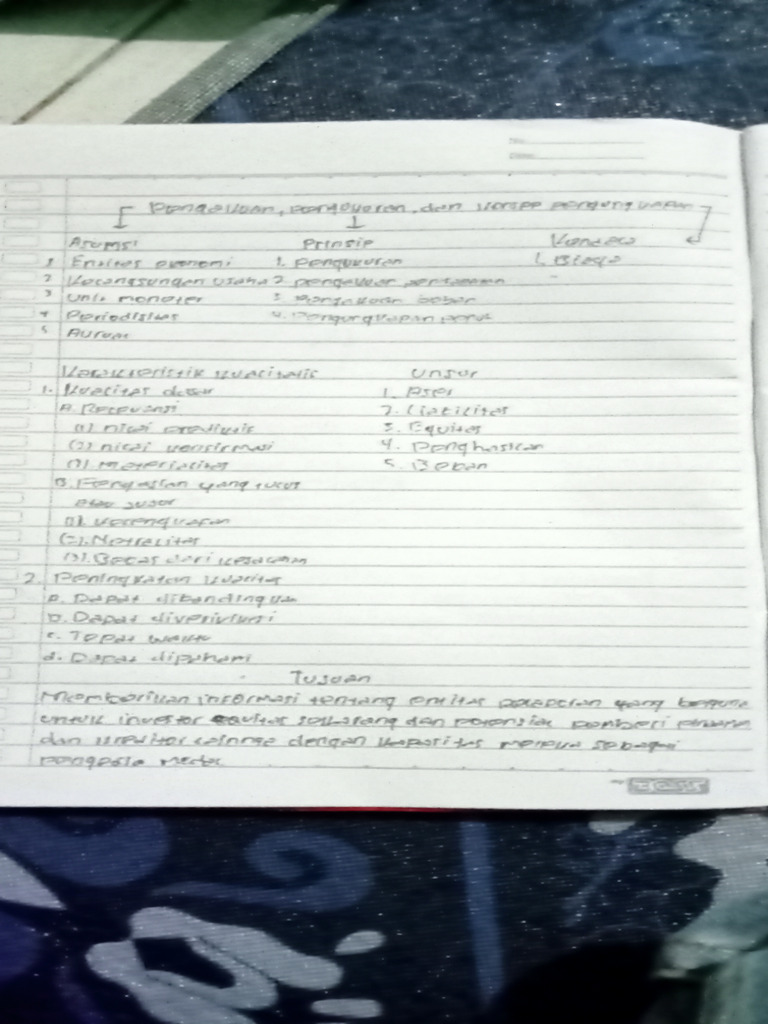 No
Date
Pengakuan, pengukuran, dan konsep pengungkapan
Asumsi Prinsip Kendala
1 Entitas ekonomi 1. Pengukuran 1. Biaya
2 Kelangsungan usaha 2 pengakuan pendapatan
3 Unit moneter 3 Pengakuan beban
4 Periodisitas 4. Pengungkapan penuh
5 Akrual
Karakteristik kualitatif Unsur
1. Kualitas dasar 1. Aset
A. Relevansi 2. Liabilitas
(1) nilai prediksi 3. Equitas
(2) nilai konfirmasi 4. Penghasilan
(3) Materialitas 5. Beban
B. Penyajian yang tulus
atau jujur
(1). Kelengkapan
(2). Netralitas
(3). Bebas dari kesalahan
2. Peningkatan kualitas
a. Dapat dibandingkan
b. Dapat diverivikasi
c. Tepat waktu
d. Dapat dipahami
Tujuan
Memberikan informasi tentang entitas pelaporan yang berguna
untuk investor equitas sekarang dan potensial pemberi pinjaman
dan kreditor lainnya dengan kapasitas mereka sebagai
pengelola